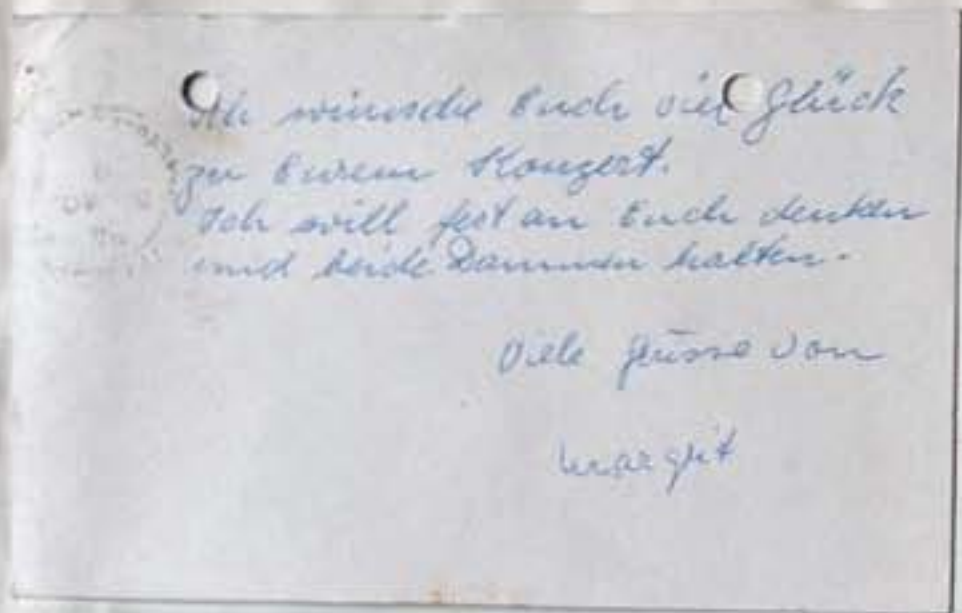 Ich wünsche Euch viel Glück
zu Eurem Konzert.
Ich will fest an Euch denken
und beide Daumen halten.
Viele Grüsse von
Margit